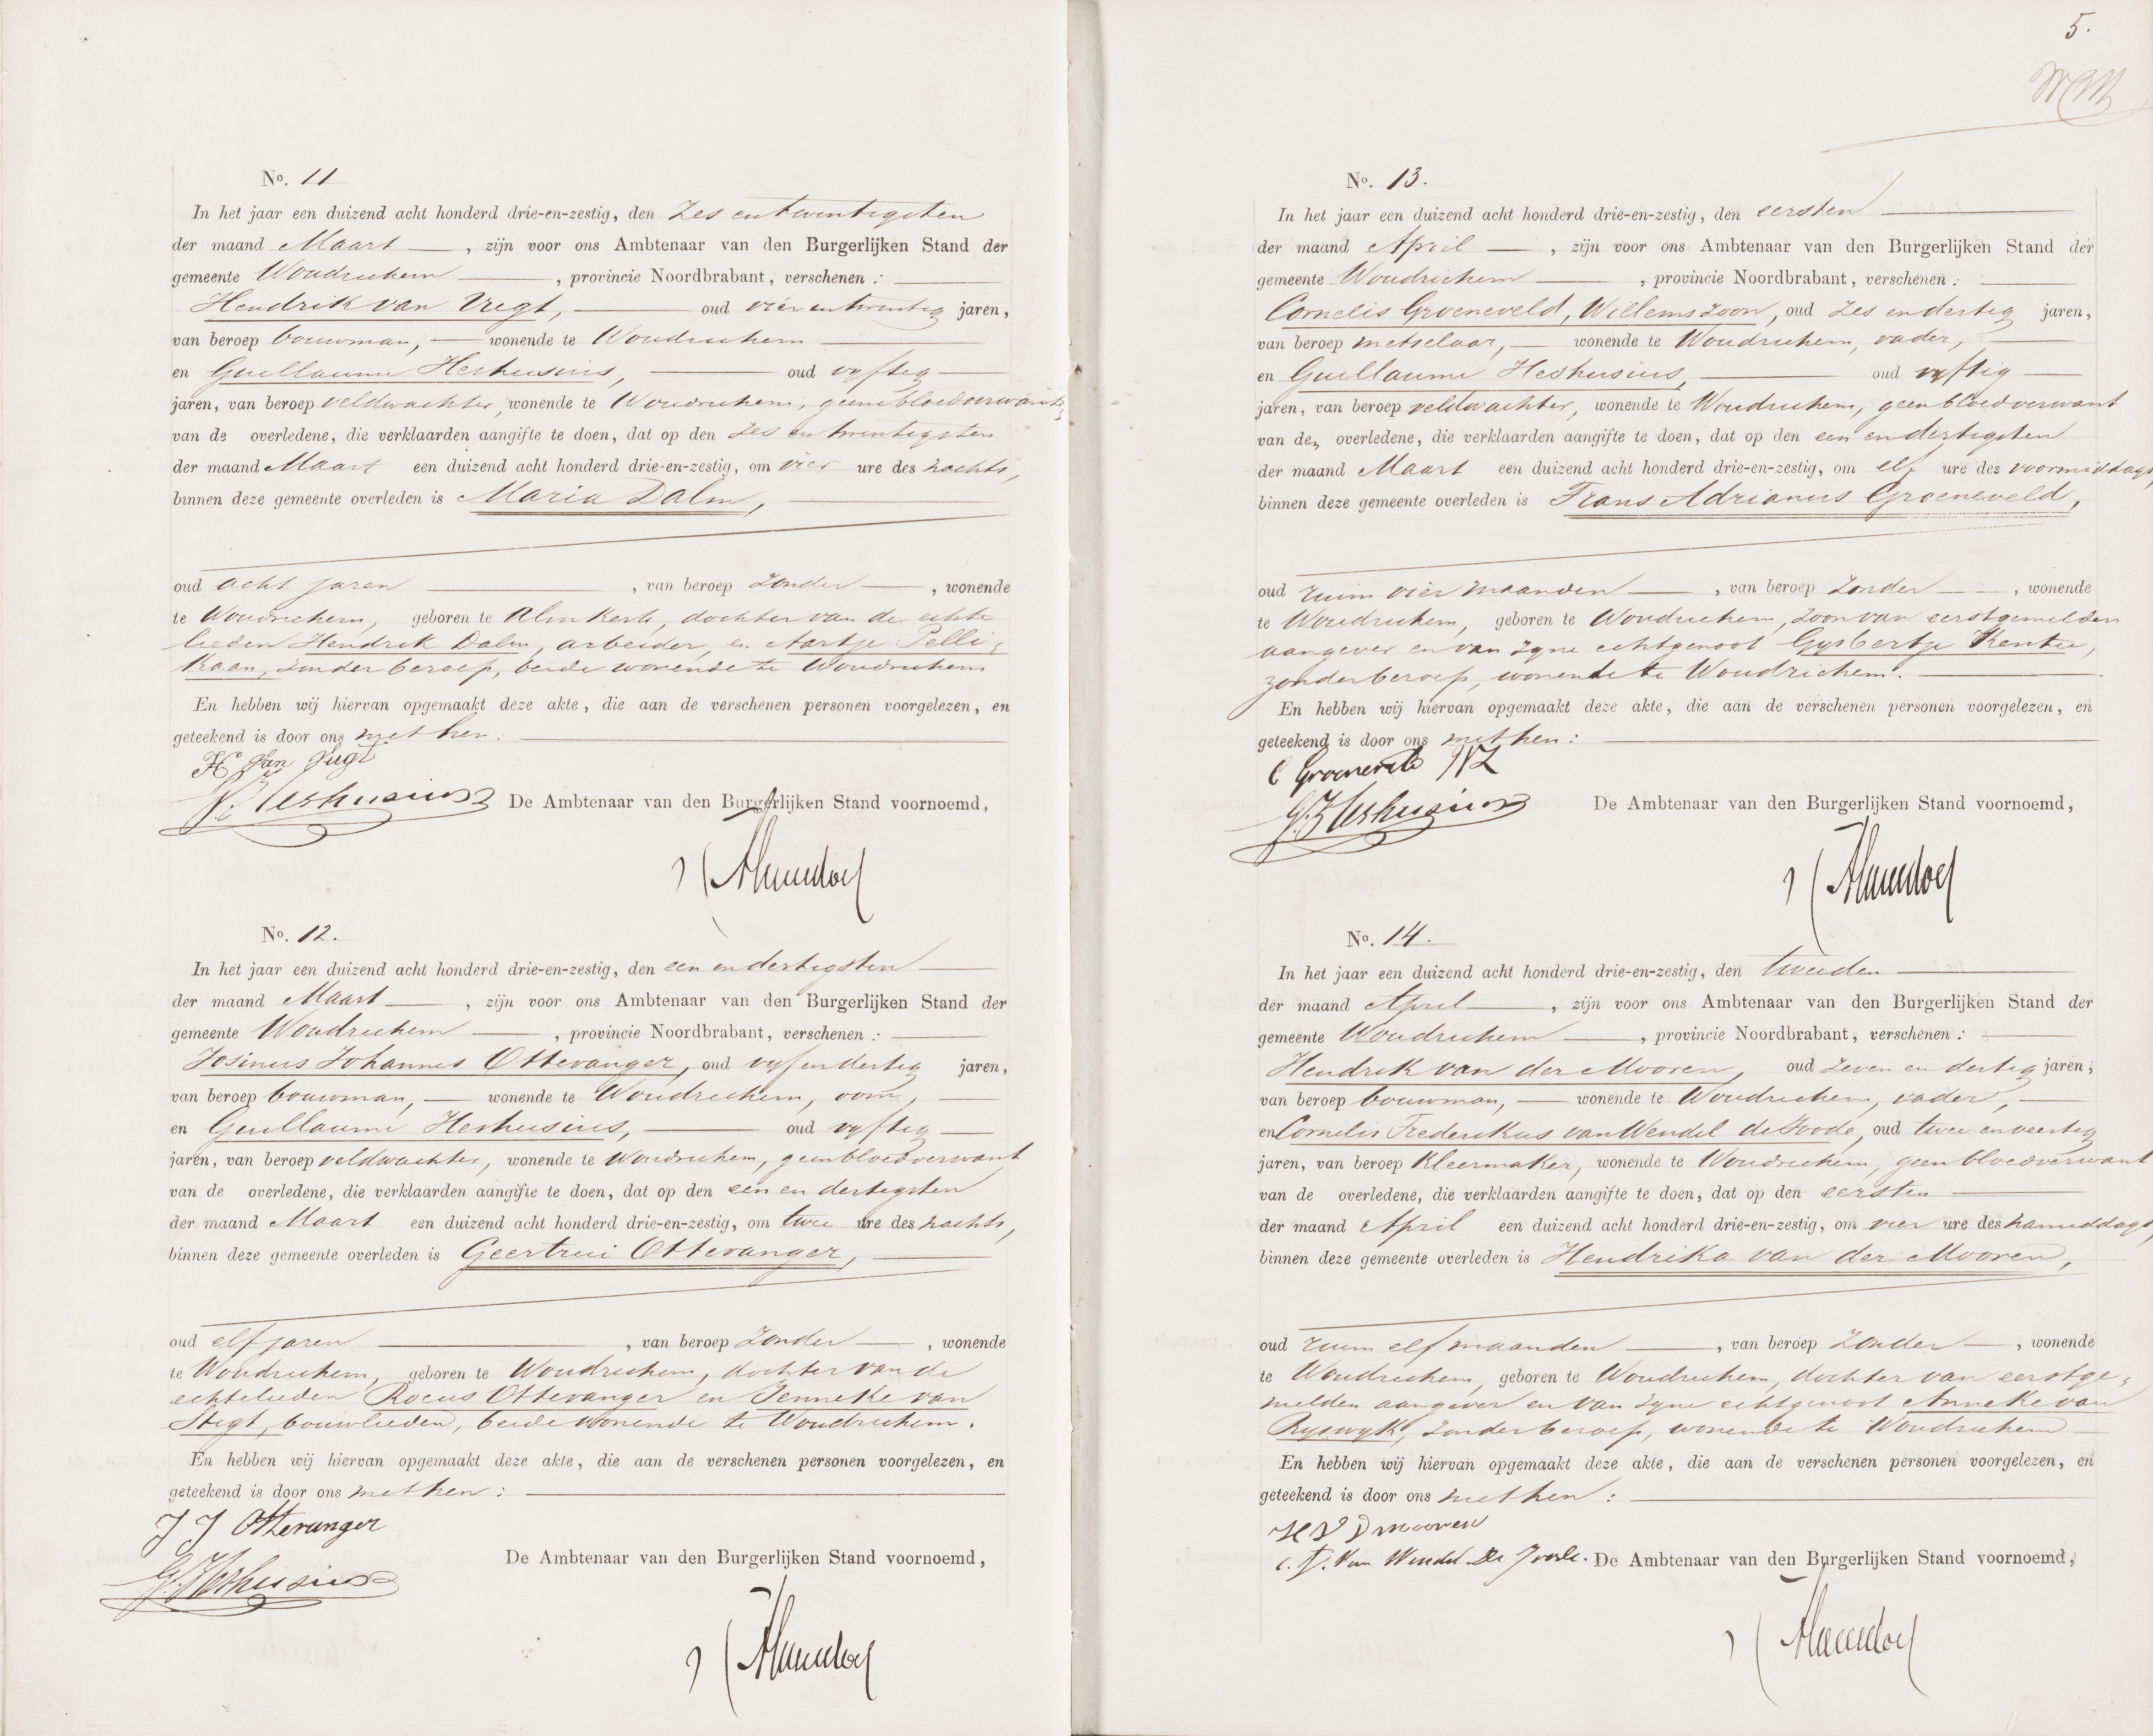 No. 11
In het jaar een duizend acht honderd drie-en-zestig, den zes en twintigsten
der maand Maart, zijn voor ons Ambtenaar van den Burgerlijken Stand der
gemeente Woudrichem, provincie Noordbrabant, verschenen:
Hendrik van Vregt, oud vier en twintig jaren,
van beroep bouwman, wonende te Woudrichem
en Guillaume Heshusius, oud vyftig
jaren, van beroep veldwachter, wonende te Woudrichem, geene bloedverwants
van de overledene, die verklaarden aangifte te doen, dat op den zes en twintigsten
der maand Maart een duizend acht honderd drie-en-zestig, om vier ure des nachts,
binnen deze gemeente overleden is Maria Dalm,
oud acht jaren, van beroep zonder, wonende
te Woudrichem, geboren te Almkerk, dochter van de echte
lieden Hendrik Dalm, arbeider, en Aartje Pelli-
kaan, zonder beroep, beide wonende te Woudrichem
En hebben wij hiervan opgemaakt deze akte, die aan de verschenen personen voorgelezen, en
geteekend is door ons met hen.
H Van Vugt
G. Heshusius
De Ambtenaar van den Burgerlijken Stand voornoemd,
No. 12.
In het jaar een duizend acht honderd drie-en-zestig, den een en dertigsten
der maand Maart, zijn voor ons Ambtenaar van den Burgerlijken Stand der
gemeente Woudrichem, provincie Noordbrabant, verschenen:
Josinus Johannes Ottevanger, oud vyf en dertig jaren,
van beroep bouwman, wonende te Woudrichem, oom,
en Guillaume Heshusius, oud vyftig
jaren, van beroep veldwachter, wonende te Woudrichem, geen bloedverwant
van de overledene, die verklaarden aangifte te doen, dat op den een en dertigsten
der maand Maart een duizend acht honderd drie-en-zestig, om twee ure des nachts,
binnen deze gemeente overleden is Geertrui Ottevanger,
oud elf jaren, van beroep zonder, wonende
te Woudrichem, geboren te Woudrichem, dochter van de
echtelieden Rocus Ottevanger en Jenneke van
Stegt, bouwlieden, beide wonende te Woudrichem.
En hebben wij hiervan opgemaakt deze akte, die aan de verschenen personen voorgelezen, en
geteekend is door ons met hen:
J J Ottevanger
G. Heshusius
De Ambtenaar van den Burgerlijken Stand voornoemd,
5.
No. 13.
In het jaar een duizend acht honderd drie-en-zestig, den eersten
der maand April, zijn voor ons Ambtenaar van den Burgerlijken Stand der
gemeente Woudrichem, provincie Noordbrabant, verschenen:
Cornelis Groeneveld, Willemszoon, oud zes en dertig jaren,
van beroep metselaar, wonende te Woudrichem, vader,
en Guillaume Heshusius, oud vyftig
jaren, van beroep veldwachter, wonende te Woudrichem, geen bloedverwant
van den overledene, die verklaarden aangifte te doen, dat op den een en dertigsten
der maand Maart een duizend acht honderd drie-en-zestig, om elf ure des voormiddags,
binnen deze gemeente overleden is Frans Adrianus Groeneveld,
oud ruim vier maanden, van beroep zonder, wonende
te Woudrichem, geboren te Woudrichem, zoon van eerstgemelden
aangever en van zyne echtgenoot Gysbertje Kentee,
zonder beroep, wonende te Woudrichem.
En hebben wij hiervan opgemaakt deze akte, die aan de verschenen personen voorgelezen, en
geteekend is door ons met hen:
C Groeneveld WZ
G. Heshusius
De Ambtenaar van den Burgerlijken Stand voornoemd,
No. 14.
In het jaar een duizend acht honderd drie-en-zestig, den tweeden
der maand April, zijn voor ons Ambtenaar van den Burgerlijken Stand der
gemeente Woudrichem, provincie Noordbrabant, verschenen:
Hendrik van der Mooren, oud zeven en dertig jaren,
van beroep bouwman, wonende te Woudrichem, vader,
en Cornelis Frederikus van Wendel de Joode, oud twee en veertig
jaren, van beroep kleermaker, wonende te Woudrichem, geen bloedverwant
van de overledene, die verklaarden aangifte te doen, dat op den eersten
der maand April een duizend acht honderd drie-en-zestig, om vier ure des namiddags,
binnen deze gemeente overleden is Hendrika van der Mooren,
oud ruim elf maanden, van beroep zonder, wonende
te Woudrichem, geboren te Woudrichem, dochter van eerstge-
melden aangever en van zyne echtgenoot Anneke van
Ryswyk, zonder beroep, wonende te Woudrichem
En hebben wij hiervan opgemaakt deze akte, die aan de verschenen personen voorgelezen, en
geteekend is door ons met hen:
H V D Mooren
C. F. Van Wendel De Joode.
De Ambtenaar van den Burgerlijken Stand voornoemd,